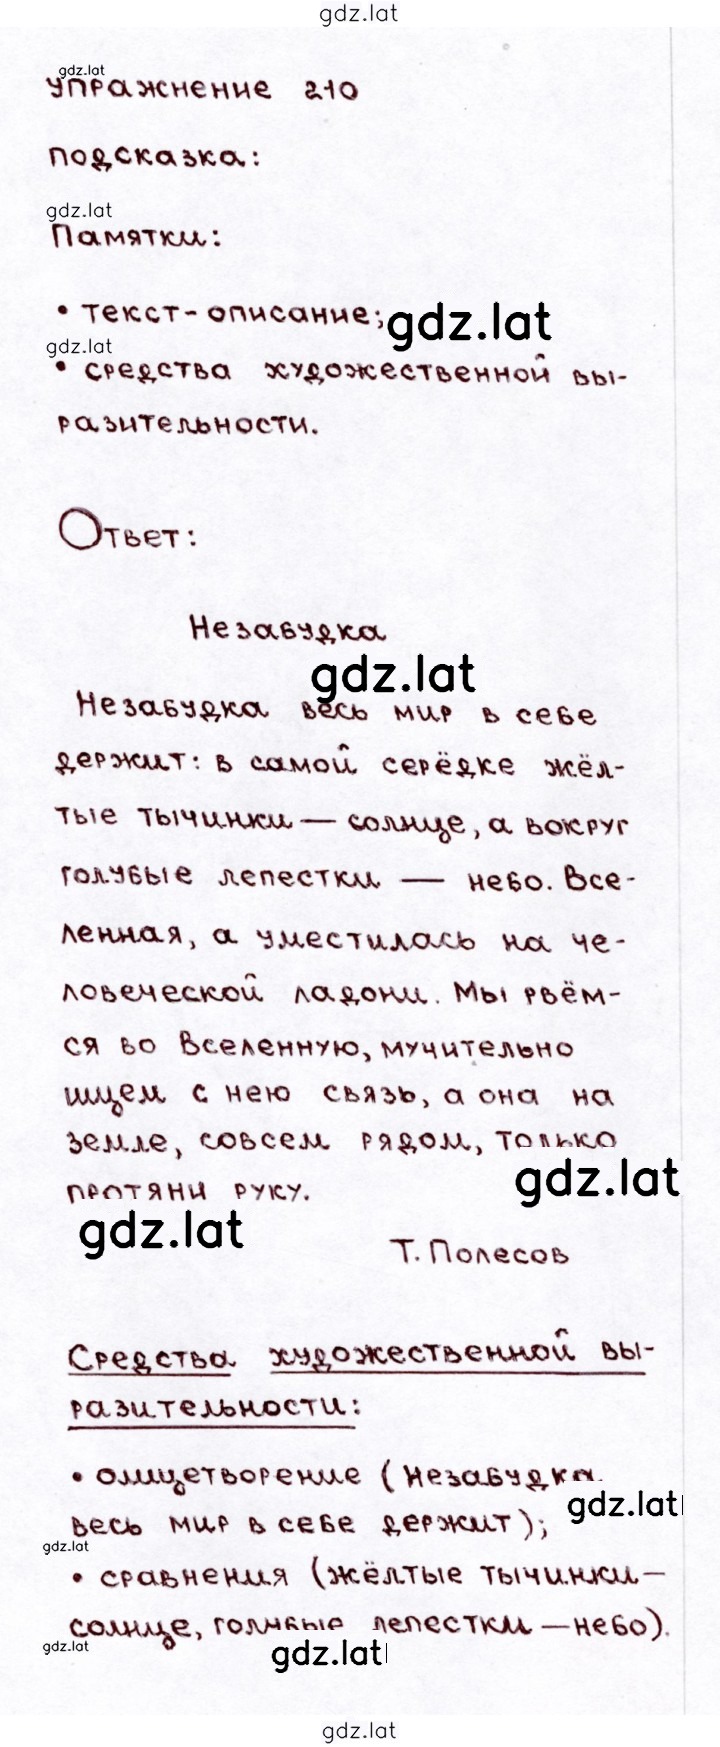 gdz.lat
gdz.lat
упражнение 210
подсказка:
gdz.lat
Памятки:
• текст-описание;
gdz.lat
gdz.lat
• средства художественной вы-
разительности.
Ответ:
Незабудка
gdz.lat
Незабудка весь мир в себе
держит: в самой серёдке жёл-
тые тычинки — солнце, а вокруг
голубые лепестки — небо. Все-
ленная, а уместилась на че-
ловеческой ладони. Мы рвём-
ся во Вселенную, мучительно
ищем с нею связь, а она на
земле, совсем рядом, только
gdz.lat
протяни руку.
gdz.lat
Т. Полесов
Средства художественной вы-
разительности:
• олицетворение (Незабудка
gdz.lat
весь мир в себе держит);
gdz.lat
• сравнения (жёлтые тычинки —
солнце, голубые лепестки — небо).
gdz.lat
gdz.lat
gdz.lat